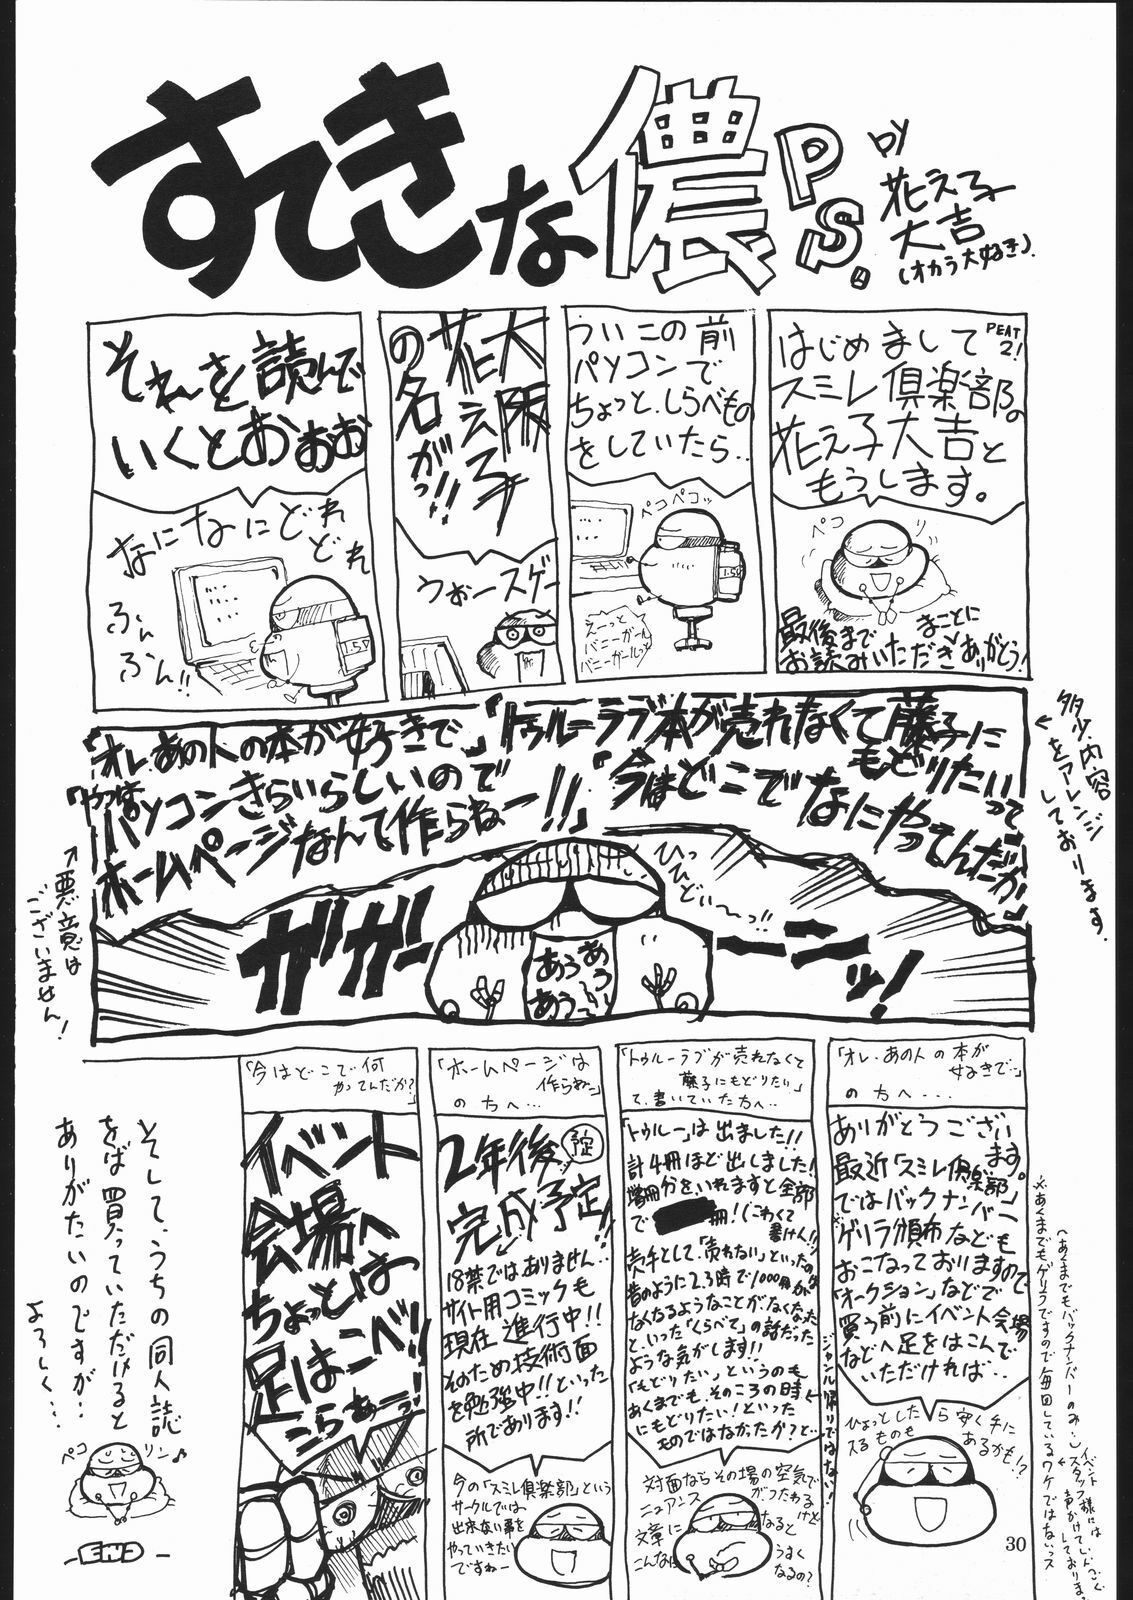 すてきな儂
P.S.
by
花え子
大吉
(オカラ大好き).
PEAT
2!
はじめまして
スミレ倶楽部の
花え子大吉と
もうします。
ペコ
リ
まことに
最後まで
お読みいただきありがとう!
ういこの前
パソコンで
ちょっと、しらべもの
をしていたら..
ペコペコッ
えーっと
バニーガール
バニーガールっと
大阪
花え子
の名がっ!!
うぉースゲー
それを読んで
いくとおぉぉ
なになにどれ
どれ
ふん
ふん!!
多少、内容
をアレンジ
しております.
「トゥルーラブ本が売れなくて藤子に
もどりたいって」
「今はどこでなにやってんだか」
「オレ、あの人の本が好きで」
「やつは
パソコンきらいらしいので
ホームページなんて作らねー!!」
↑悪意は
ございません!
ひっ
ひどぃ〜っ!!
ガガーーーンッ!
あうあうあうあう〜
「オレ、あの人の本が
好きで…」
の方へ・・・
ありがとうござい
ます。
最近「スミレ倶楽部」
ではバックナンバー
※ゲリラ頒布なども
おこなっておりますので
「オークション」などで
買う前にイベント会場
などへ足をはこんで
いただければ..
ひょっとしたら安く手に
入るものも
あるかも!?
※あくまでもゲリラですので毎回しているワケではないっス
(あくまでもバックナンバーのみ…)
「トゥルーラブが売れなくて
藤子にもどりたい」
て、書いていた方へ…
「トゥルー」は出ました!!
計4冊ほど出しました!
増冊分をいれますと全部
で
冊!(こわくて
書けん!!)
売手として、「売れない」といったのは
昔のように2.3時で1000冊が
なくなるようなことがなくなった
といった「くらべて」の話だった
ような気がします!!
「もどりたい」というのも
あくまでも、そのころの時
にもどりたい!といった
ものではなかったか?と…
←ジャンル帰りではない!
対面ならその場の空気で
ニュアンス
がつたわる
けど
文章に
なると
こんなに
うまく
なるの?
「ホームページは
作らね〜」
の方へ…
2年後
予定
完成予定!!
18禁ではありません…
サイト用コミックも
現在進行中!!
そのため技術面
を勉強中!!といった
所であります!!
今の「スミレ倶楽部」という
サークルでは
出来ない事を
やっていきたい
ですねー
「今はどこで何
やってんだか?」
イベント
会場へ
ちょっとは
足はこべ!!
こらぁーっ!!
そして、うちの同人誌
をば買っていただけると
ありがたいのですが…
よろしく…
ペコ
リン♪
-END-
30